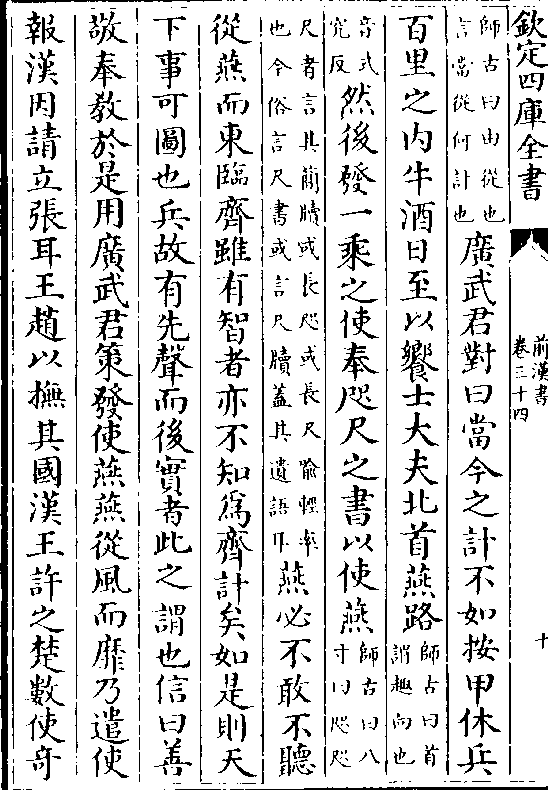 欽定四庫全書
前漢書
卷三十四
十
師古曰由從也
言當從何計也
廣武君對曰當今之計不如按甲休兵
百里之内牛酒日至以饗士大夫北首燕路
師古曰首
謂趣向也
音式
究反
然後發一乘之使奉咫尺之書以使燕
師古曰八
寸曰咫咫
尺者言其簡牘或長咫或長尺喻輕率
也今俗言尺書或言尺牘蓋其遺語耳
燕必不敢不聽
從燕而東臨齊雖有智者亦不知為齊計矣如是則天
下事可圖也兵故有先聲而後實者此之謂也信曰善
敬奉教於是用廣武君策發使燕燕從風而靡乃遣使
報漢因請立張耳王趙以撫其國漢王許之楚數使奇